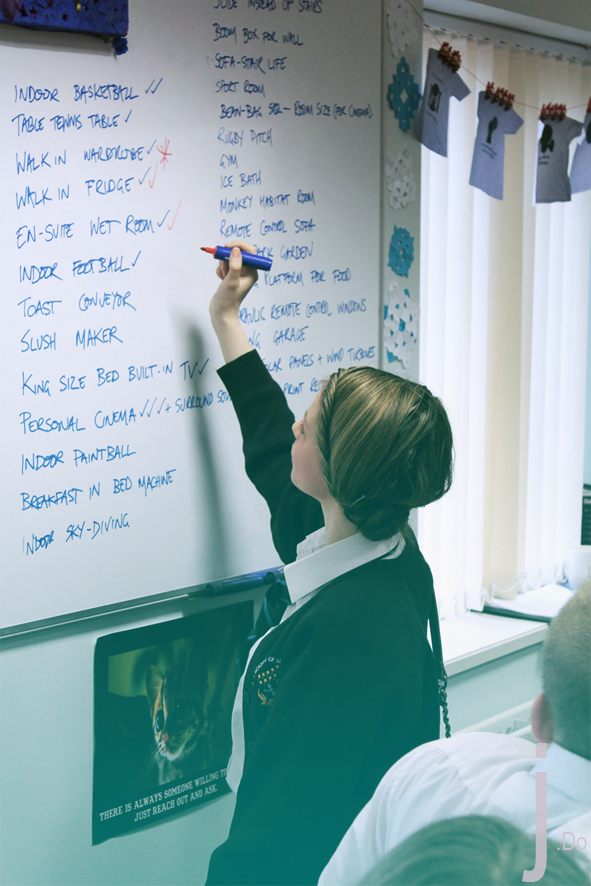 INDOOR BASKETBALL
TABLE TENNIS TABLE
WALK IN WARDROBE
WALK IN FRIDGE
EN-SUITE WET ROOM
INDOOR FOOTBALL
TOAST CONVEYOR
SLUSH MAKER
KING SIZE BED BUILT-IN TV
PERSONAL CINEMA + SURROUND
INDOOR PAINTBALL
BREAKFAST IN BED MACHINE
INDOOR SKY-DIVING
SLIDE INSTEAD OF STAIRS
BOOM BOX FOR WALL
SOFA-STAIR LIFE
SPORT ROOM
BEAN-BAG ROOM SIZE (FOR CINEMA)
RUGBY PITCH
GYM
ICE BATH
MONKEY HABITAT ROOM
REMOTE CONTROL SOFA
GARDEN
PLATFORM FOR FOOD
REMOTE CONTROL WINDOWS
GARAGE
PANELS + WIND TURBINES
PRINT
THERE IS ALWAYS SOMEONE WILLING TO
JUST REACH OUT AND ASK.
j.Do